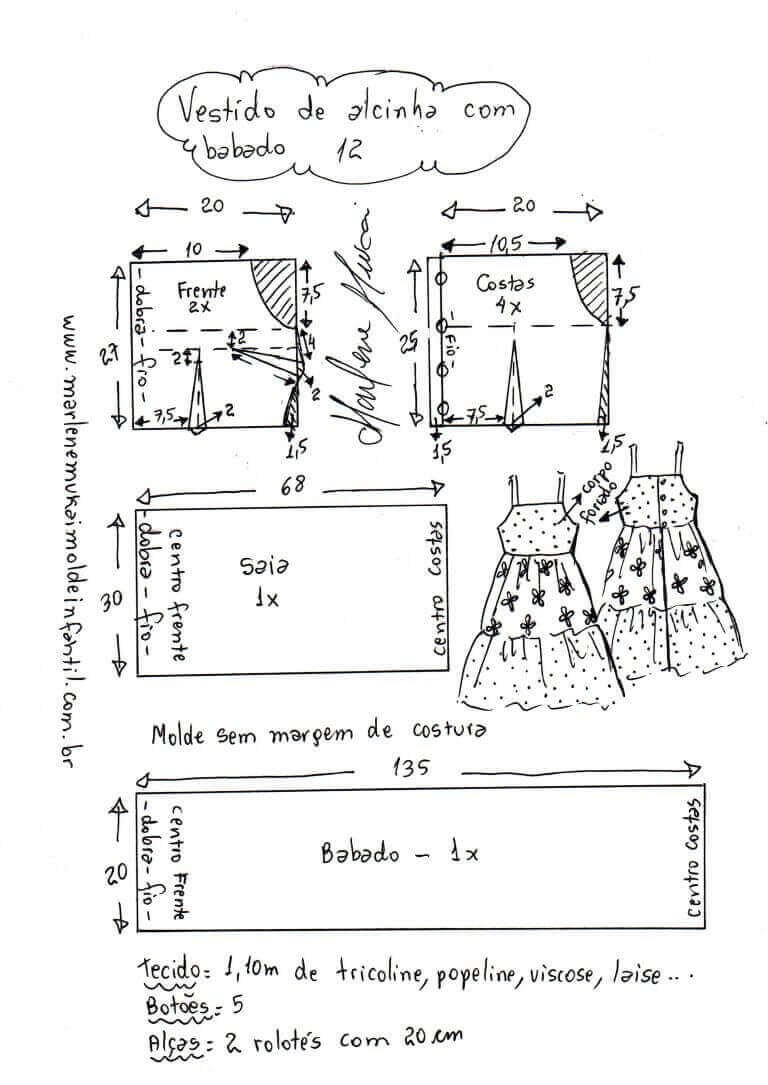 Vestido de alcinha com
babado 12
20
20
10
10,5
- dobra - fio -
Frente
2x
7,5
Marlene Mukai
Costas
4x
7,5
27
2
4
2
25
- Fio -
7,5
2
2
1,5
7,5
2
1,5
1,5
www.marlenemukaimoldeinfantil.com.br
68
corpo
forrado
30
- dobra - fio -
centro frente
Saia
1x
centro costas
Molde sem margem de costura
135
20
- dobra - fio -
centro Frente
Babado - 1x
centro costas
Tecido = 1,10m de tricoline, popeline, viscose, laise...
Botões = 5
Alças = 2 rolotés com 20 cm